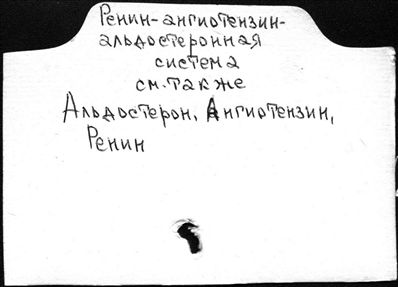 Ренин-ангиотензин-
альдостеронная
система
см. также
Альдостерон, Ангиотензин,
Ренин